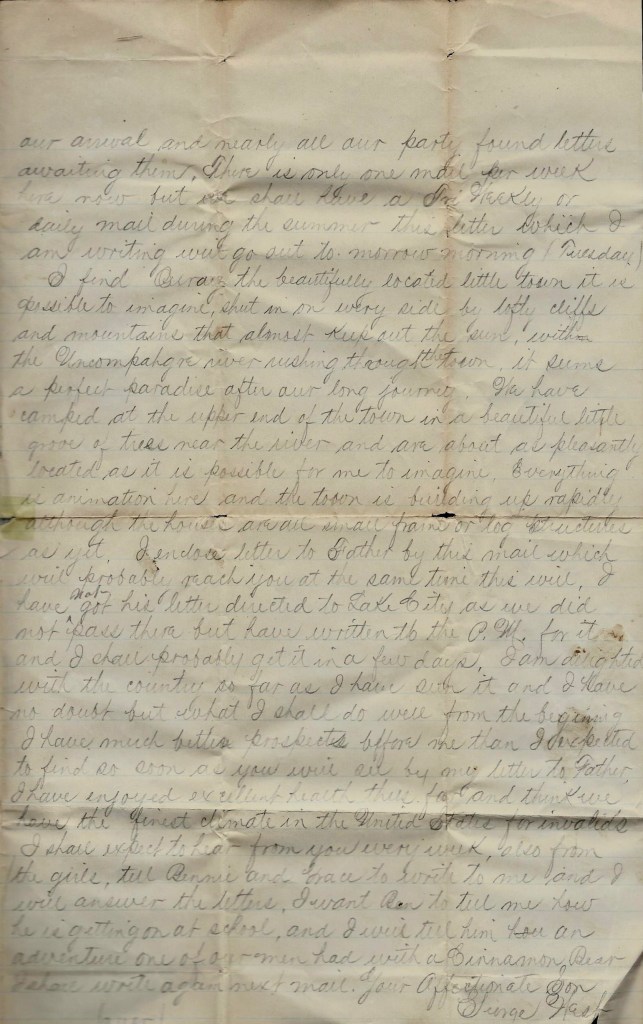 our arrival and nearly all our party found letters
awaiting them. There is only one mail per week
here now but we shall have a Tri Weekly or
daily mail during the summer this letter which I
am writing will go out to-morrow morning (Tuesday)
I find Ouray the beautifully located little town it is
possible to imagine, shut in on every side by lofty cliffs
and mountains that almost keep out the sun, with
the Uncompahgre river rushing through the town. it seems
a perfect paradise after our long journey. We have
camped at the upper end of the town in a beautiful little
grove of trees near the river and are about as pleasantly
located as it is possible for me to imagine. Everything
is animation here and the town is building up rapidly
although the houses are all small frame or log structures
as yet. I enclose letter to Father by this mail which
will probably reach you at the same time this will. I
have not got his letter directed to Lake City as we did
not pass there but have written to the P.M. for it
and I shall probably get it in a few days. I am delighted
with the country so far as I have seen it and I have
no doubt but what I shall do well from the begining
I have much better prospects before me than I expected
to find so soon as you will see by my letter to Father.
I have enjoyed excellent health thus far and think we
have the finest climate in the United States for invalids
I shall expect to hear from you every week, also from
the girls, tell Bennie and Grace to write to me and I
will answer the letters. I want Ben to tell me how
he is getting on at school, and I will tell him how an
adventure one of our men had with a Cinnamon Bear
I shall write again next mail. Your Affectionate Son
George West